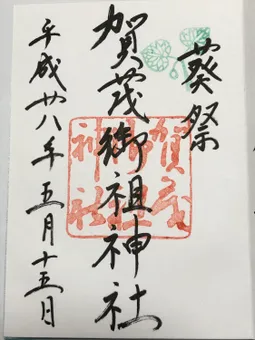 葵祭
賀茂御祖神社
平成廿八年五月十五日
賀茂
御祖
神社